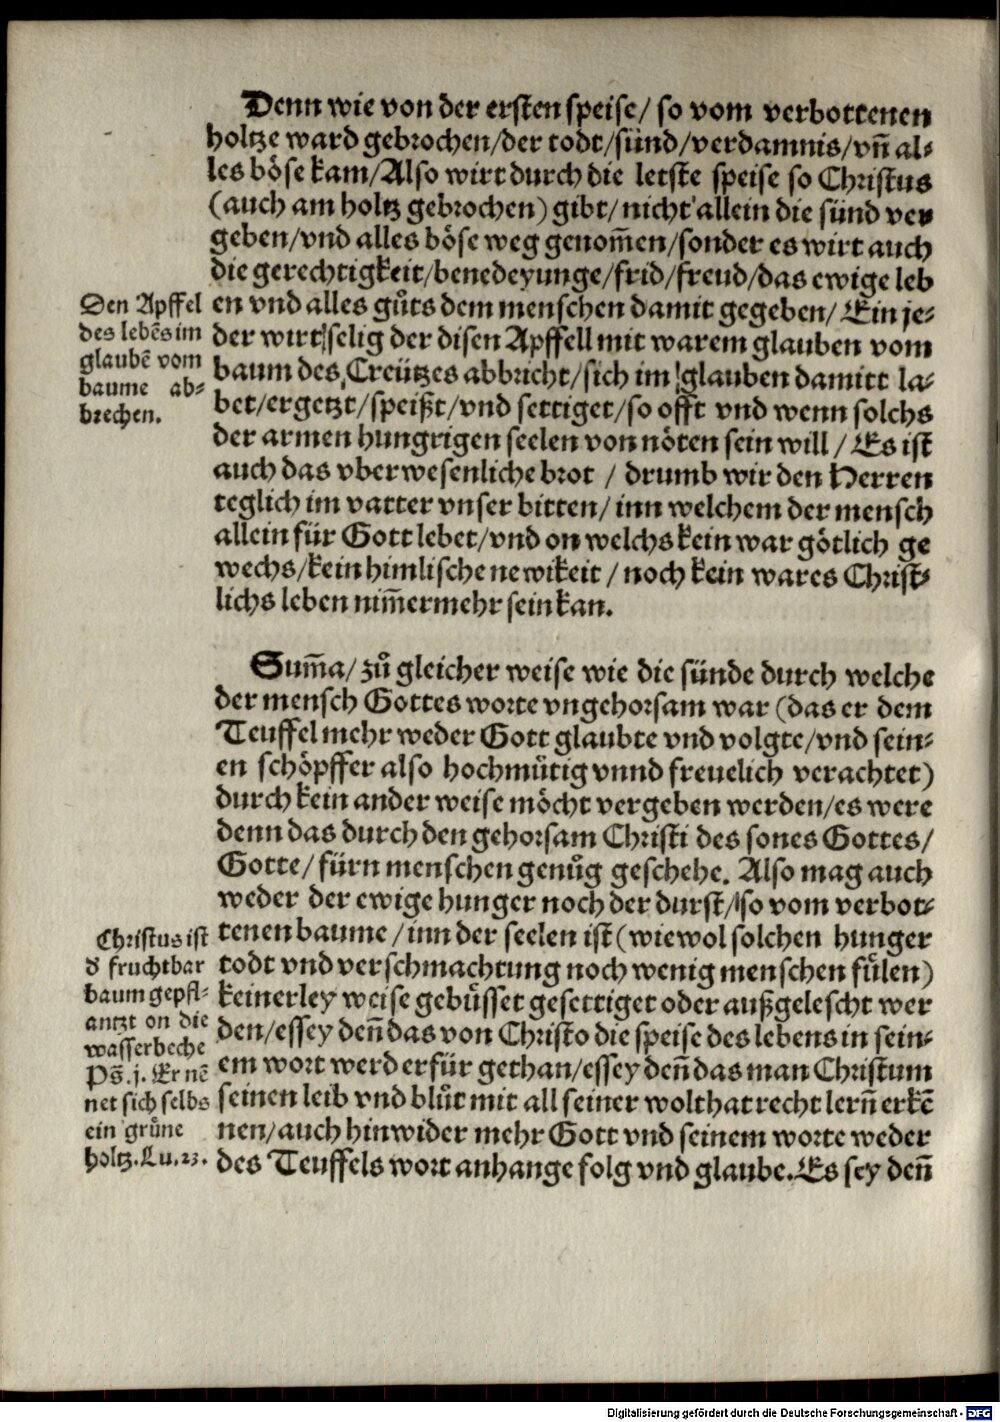 Denn wie von der ersten speise/ so vom verbottenen
holtze ward gebrochen/der todt/sünd/verdamnis/vñ al⸗
les böse kam/Also wirt durch die letste speise so Christus
(auch am holtz gebrochen) gibt/ nicht allein die sünd ver
geben/vnd alles böse weg genom̃en/sonder es wirt auch
die gerechtigkeit/benedeyunge/frid/freud/das ewige leb
en vnd alles gůts dem menschen damit gegeben/ Ein je⸗
der wirt selig der disen Apffell mit warem glauben vom
baum des Creützes abbricht/sich im glauben damitt la⸗
bet/ergetzt/speißt/vnd settiget/so offt vnd wenn solchs
der armen hungrigen seelen von nöten sein will / Es ist
auch das vberwesenliche brot / drumb wir den Herren
teglich im vatter vnser bitten/ inn welchem der mensch
allein für Gott lebet/vnd on welchs kein war götlich ge
wechs/kein himlische newikeit / noch kein wares Christ⸗
lichs leben nim̃ermehr sein kan.
Den Apffel
des lebẽs im
glaubẽ vom
baume ab⸗
brechen.
Sum̃a/ zů gleicher weise wie die sünde durch welche
der mensch Gottes worte vngehorsam war (das er dem
Teuffel mehr weder Gott glaubte vnd volgte/vnd sein⸗
en schöpffer also hochmütig vnnd freuelich verachtet)
durch kein ander weise möcht vergeben werden/es were
denn das durch den gehorsam Christi des sones Gottes/
Gotte/ fürn menschen genůg geschehe. Also mag auch
weder der ewige hunger noch der durst/so vom verbot⸗
tenen baume /inn der seelen ist (wiewol solchen hunger
todt vnd verschmachtung noch wenig menschen fülen)
keinerley weise gebüsset gesettiget oder außgelescht wer
den/essey deñ das von Christo die speise des lebens in sein⸗
em wort werd erfür gethan/essey deñ das man Christum
seinen leib vnd blůt mit all seiner wolthat recht lerñ erkẽ
nen/auch hinwider mehr Gott vnd seinem worte weder
des Teuffels wort anhange folg vnd glaube. Es sey deñ
Christus ist
d fruchtbar
baum gepfl⸗
antzt on die
wasserbeche
Ps̃. j. Er nẽ
net sich selbs
ein grüne
holtz. Lu. 23.
Digitalisierung gefördert durch die Deutsche Forschungsgemeinschaft - DFG